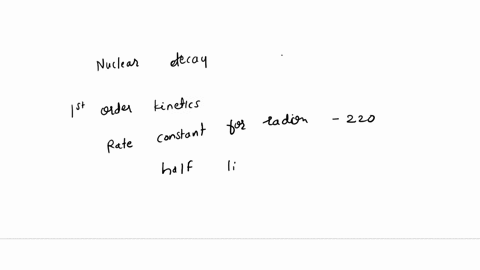 Nuclear decay
1st order kinetics
Rate constant for radion - 220
half li